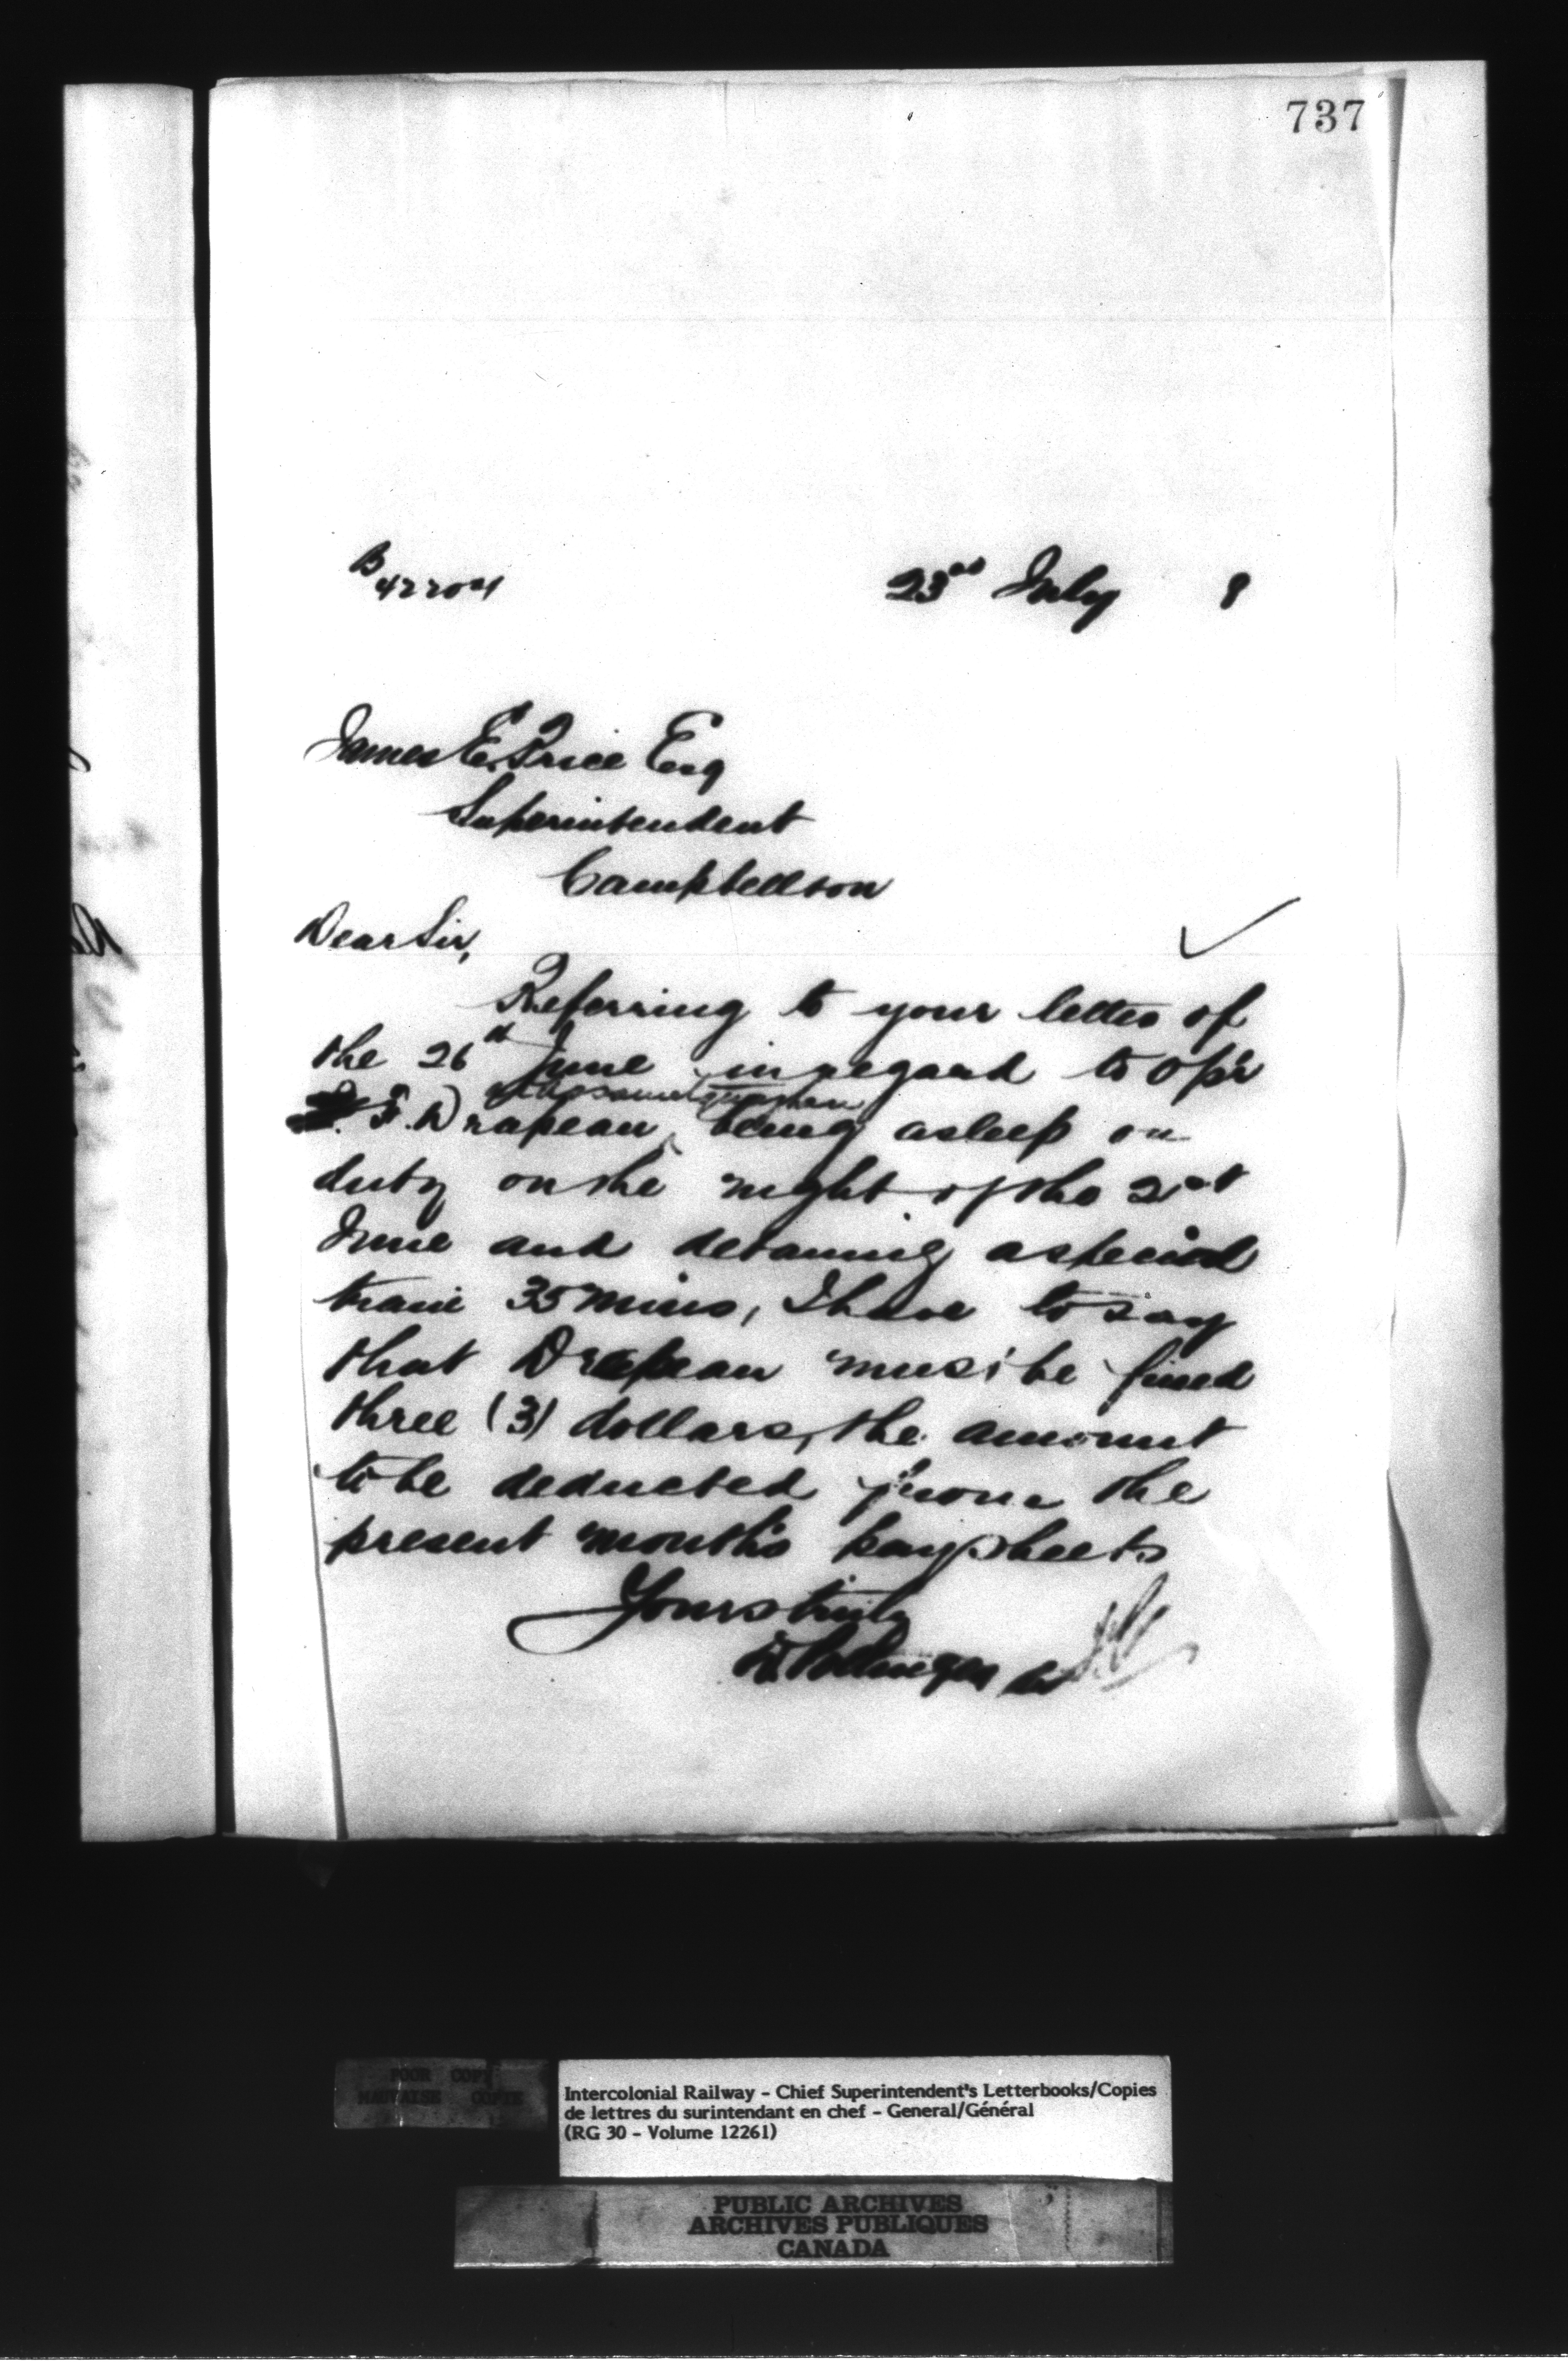 737
B 42204
23rd July 8
James E. Price Esq
Superintendent
Campbellton
Dear Sir,
Referring to your letter of
the 26th June in regard to Op'r
F. Drapeau being asleep on
duty on the night of the 21st
June and detaining a special
train 35 mins, I have to say
that Drapeau must be fined
three (3) dollars, the amount
to be deducted from the
present month's paysheets
Yours truly
D Pottinger
POOR COPY
MAUVAISE COPIE
Intercolonial Railway - Chief Superintendent's Letterbooks/Copies
de lettres du surintendant en chef - General/Général
(RG 30 - Volume 12261)
PUBLIC ARCHIVES
ARCHIVES PUBLIQUES
CANADA